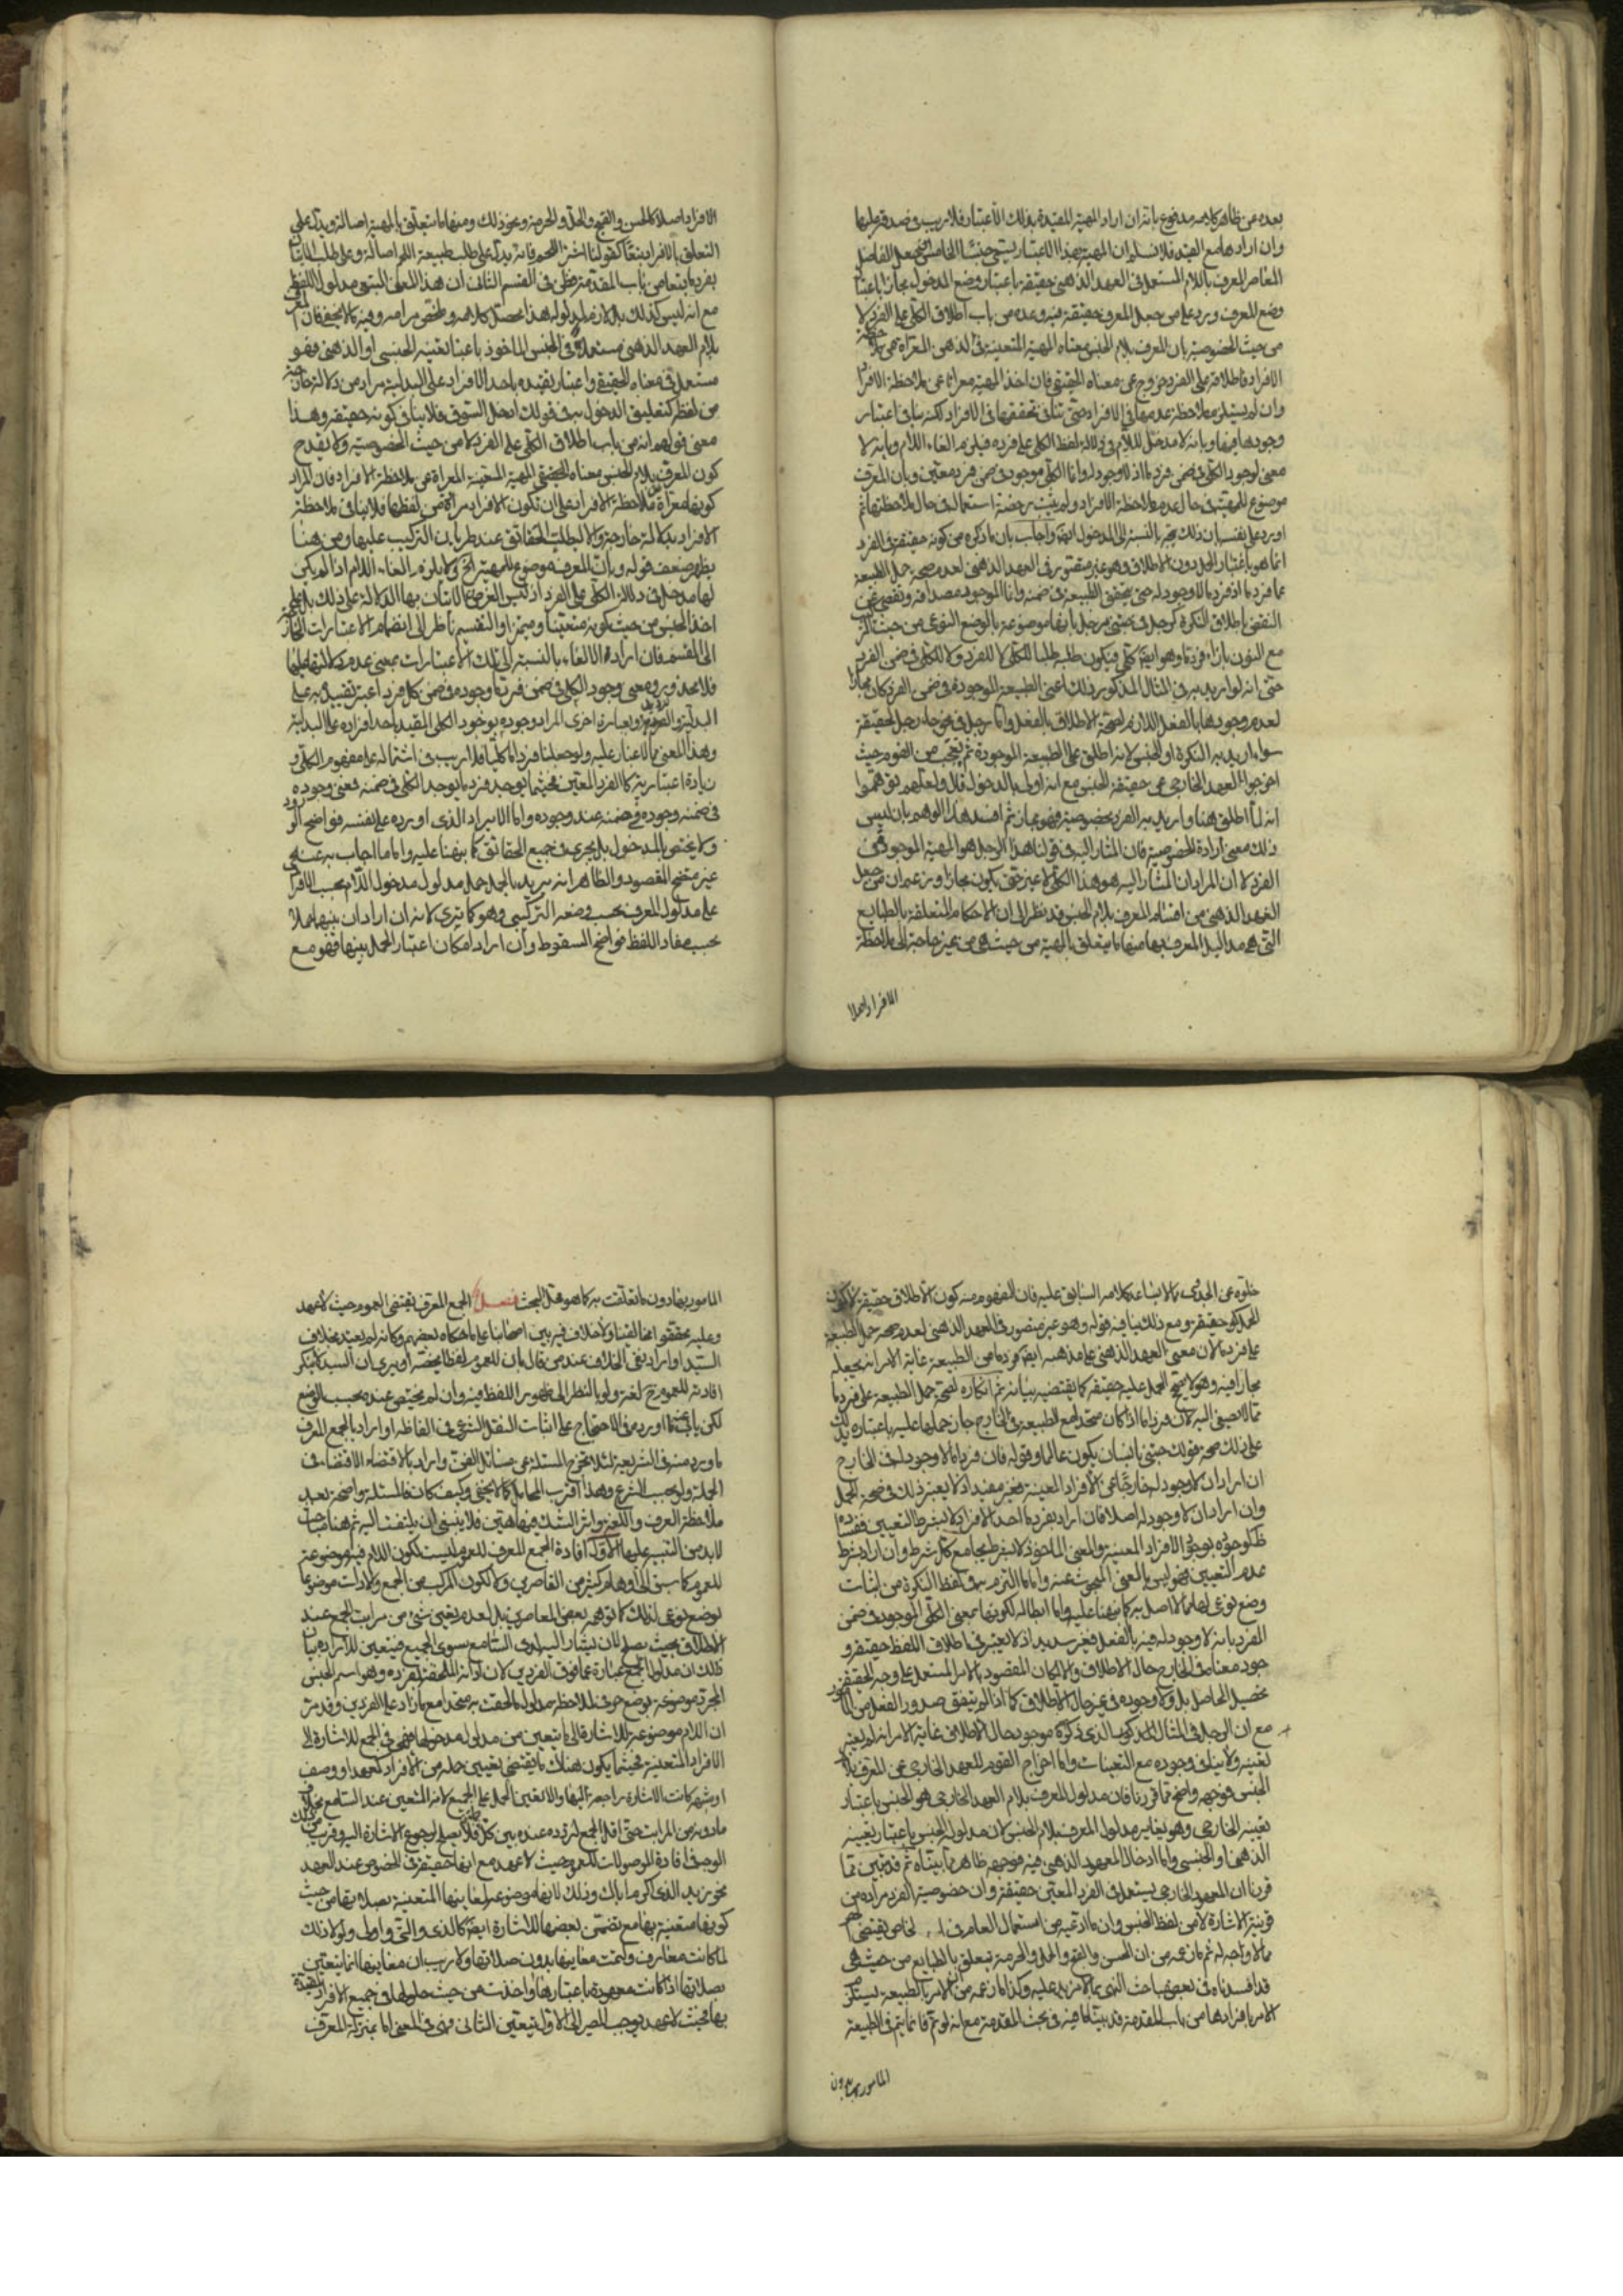 بعده عن ظاهر كلامه مدفوع بانه ان اراد المهية المقيدة بذلك الاعتبار فلا ريب في صدقه عليها
وان ارادها مع القيد فلا نسلم ان المهية بهذا الاعتبار يسمى جنسا الخامس جعل الفاضل
المعاصر المعرف باللام المستعمل في العهد الذهني حقيقة باعتبار وضع المدخول مجازا باعتبار
وضع المعرف ويرد على من جعل المعرف حقيقة فيه وعده من باب اطلاق الكلي على الفرد لا
من حيث الخصوصية بان المعرف بلام الجنس معناه المهية المتعينة في الذهن المعراة عن ملاحظة
الافراد فاطلاقه على الفرد خروج عن معناه الحقيقي فان اخذ المهية معراة عن ملاحظة الافراد
وان لم يستلزم ملاحظة عدمها في الافراد حتى تنافي تحققها في الافراد لكنه ينافي اعتبار
وجودها فيها وبانه لا مدخل للام في دلالة لفظ الكلي على فرده فيلزم الغاء اللام وبانه لا
معنى لوجود الكلي في ضمن فرد ما اذ لا وجود له وانما الكلي موجود في ضمن فرد معين وبان المعرف
موضوع للمهية في حال عدم ملاحظة الافراد ولم يثبت رخصة استعماله في حال ملاحظتها ثم
اورد على نفسه بان ذلك يجه بالنسبة الى المدخول ايضا واجاب بان ما ذكره من كونه حقيقة في الفرد
انما هو باعتبار الحمل دون الاطلاق وهو غير متصور في العهد الذهني لعدم صحة حمل الطبيعة
على فرد ما اذ فرد ما لا وجود له حتى يتحقق الطبيعة في ضمنه وانما الموجود مصداقه وتفصى عن
النقض باطلاق النكرة كرجل في جئني برجل بانها موضوعة بالوضع النوعي من حيث التركيب
مع التنوين بازاء فرد ما وهو ايضا كلي فيكون طلبه طلبا للكلي لا للفرد ولا للكلي في ضمن الفرد
حتى انه لو اريد به في المثال المذكور ذلك اعنى الطبيعة الموجودة في ضمن الفرد كان مجازا
لعدم وجودها بالفعل اللازم لصحة الاطلاق بالفعل واما رجل في نحو جاء رجل لحقيقة
سواء اريد به النكرة او الجنس لانه اطلق على الطبيعة الموجودة ثم تعجب من القوم حيث
اخرجوا العهد الخارجي عن حقيقة الجنس مع انه اولى بالدخول قال ولعلهم توهموا
انه لما اطلق هنا واريد به الفرد بخصوصه فهو مجاز ثم افسد هذا الوهم بان ليس
ذلك معنى ارادة الخصوصية فان المشار اليه في قولنا هذا الرجل هو المهية الموجودة في
الفرد لا ان المراد ان المشار اليه هو هذا الكلي لا غير حتى يكون مجازا وزعم ان من جعل
العهد الذهني من اقسام المعرف بلام الجنس قد نظر الى ان الاحكام المتعلقة بالطبايع
التي هي مداليل المعرف بها منها ما يتعلق بالمهية من حيث هي من غير حاجة الى ملاحظة
الافراد اصلا
الافراد اصلا كالحسن والقبح والحل والحرمة ونحو ذلك ومنها ما يتعلق بالمهية اصالة ويدل على
التعلق بالافراد تبعا كقولنا اشتر اللحم فانه يدل على طلب طبيعة اللحم اصالة وعلى طلب الاتيان
بفرد ما تبعا من باب المقدمة فظن في القسم الثاني ان هذا المعنى التبعي مدلول اللفظ
مع انه ليس كذلك بل لازم لمدلوله هذا محصل كلامه وملخص مرامه وفيه ما لا يخفى فان المعرف
بلام العهد الذهني مستعمل في الجنس الماخوذ باعتبار تعينه الجنسي او الذهني فهو
مستعمل في معناه الحقيقي واعتبار تقيده باحد الافراد على البدلية مراد من دلالة خارجة
من لفظه كتعليق الدخول به في قولك ادخل السوق فلا ينافي كونه حقيقة وهذا
معنى قولهم انه من باب اطلاق الكلي على الفرد لا من حيث الخصوصية ولا يقدح
كون المعرف بلام الجنس معناه الحقيقي المهية المتعينة المعراة عن ملاحظة الافراد فان المراد
كونها معراة من ملاحظة الافراد على ان تكون الافراد مرادة من لفظها فلا ينافي ملاحظة
الافراد بدلالة خارجة والا لبطلت الحقائق عند طريان التركيب عليها ومن هنا
يظهر ضعف قوله وبان المعرف موضوع للمهية الخ ولا يلزم الغاء اللام اذا لم يكن
لها مدخل في دلالة الكلي على الفرد اذ ليس الغرض من الاتيان بها الدلالة على ذلك بل على
اخذ الجنس من حيث كونه متعينا ومتميزا والتقسيم ناظر الى انضمام الاعتبارات الخارجة
الى المقسم فان اراد الالغاء بالنسبة الى تلك الاعتبارات بمعنى عدم دلالتها عليها
فلا محذور فيه ومعنى وجود الكلي في ضمن فرد ما وجوده في ضمن كل فرد اعتبر تقييده به على
البدلية والترديد وبعبارة اخرى المراد وجوده بوجود الكلي المقيد باحد افراده على البدلية
وهذا المعنى مما لا غبار عليه ولو جعلنا فرد ما كليا فلا ريب في اشتماله على مفهوم الكلي و
زيادة اعتبارية كالفرد المعين فحيثما يوجد فرد ما يوجد الكلي في ضمنه فمعنى وجوده
في ضمنه وجوده في ضمنه عند وجوده واما الايراد الذي اورده على نفسه فواضح الورود
ولا يختص بالمدخول بل يجري في جميع الحقائق كما نبهنا عليه واما ما اجاب به عنه فهي
غير متضح المقصود والظاهر انه يريد بالحمل حمل مدلول مدخول اللام بحسب الافراد
على مدلول المعرف بحسب وضعه التركيبي وهو كما ترى لانه ان اراد ان بينهما حملا
بحسب مفاد اللفظ فواضح السقوط وان اراد امكان اعتبار الحمل بينهما فهو مع
خلوه عن الجدوى مما لا يساعد كلامه السابق عليه فان المفهوم منه كون الاطلاق حقيقة لا كون
الحمل حقيقة ومع ذلك ينافيه قوله وهو غير متصور في العهد الذهني لعدم صحة حمل الطبيعة
على فرد ما لان معنى العهد الذهني على مذهبه ايضا فرد ما من الطبيعة غاية الامر انه يجعله
مجازا فيه وهو لا يصحح الحمل عليه حقيقة كما يقتضيه بيانه ثم انكاره لصحة حمل الطبيعة على فرد ما
مما لا يصغى اليه لان فرد ما اذا كان متحدا مع الطبيعة في الخارج جاز حملها عليه باعتباره يدلك
على ذلك صحة قولك جئني بانسان يكون عالما وقوله فان فرد ما لا وجود له في الخارج
ان اراد ان لا وجود له خارجا عن الافراد المعينة فغير مفيد اذ لا يعتبر ذلك في صحة الحمل
وان اراد ان لا وجود له اصلا فان اراد بفرد ما احد الافراد لا بشرط التعيين ففساده
ظاهر لوجوده بوجود الافراد المعينة والمعنى الماخوذ لا بشرط يجامع كل شرط وان اراد بشرط
عدم التعيين فهو ليس بالمعنى المبحوث عنه واما ما التزم به في لفظ النكرة من اثبات
وضع نوعي لها فمما لا اصل له كما نبهنا عليه واما ابطاله لكونها بمعنى الكلي الموجود في ضمن
الفرد بانه لا وجود له فيه بالفعل فغير سديد اذ لا يعتبر في اطلاق اللفظ حقيقة و
جود معناه في الخارج حال الاطلاق والا لكان المقصود بالامر المستعمل على وجه الحقيقة
تحصيل الحاصل بل ولا وجوده في غير حال الاطلاق كما اذا لم يتفق صدور الفعل من المامور
مع ان الرجل في المثال المذكور الذي ذكره موجود حال الاطلاق غاية الامر انه لم يعتبر
تعينه ولا ينافي وجوده مع التعينات واما اخراج القوم للعهد الخارجي عن المعرف بلام
الجنس فوجهه واضح مما قررنا فان مدلول المعرف بلام العهد الخارجي هو الجنس باعتبار
تعينه الخارجي وهو يغاير مدلول المعرف بلام الجنس لان مدلوله الجنس باعتبار تعينه
الذهني او الجنسي واما ادخال المعهود الذهني فيه فوجهه ظاهر مما بيناه ثم قد تبين مما
قررنا ان المعهود الخارجي يستعمل في الفرد المعين حقيقة وان خصوصية الفرد مرادة من
قرينة الاشارة لا من لفظ الجنس وان ما ادعيه من استعمال العام في الخاص يقتضي
مما لا وجه له ثم ما زعمه من ان الحسن والقبح والحل والحرمة تتعلق بالطبايع من حيث هي
قد افسدناه في بعض مباحث النهي بما لا مزيد عليه وكذا ما زعمه من ان الامر بالطبيعة يستلزم
الامر بافرادها من باب المقدمة قد بينا ما فيه في بحث المقدمة مع انه لو تم فانما يتم في الطبيعة
المامور بها دون
المامور بها دون ما تعلقت به كما هو محل البحث فصل الجمع المعرف يقتضي العموم حيث لا عهد
وعليه محققوا مخالفينا ولا خلاف فيه بين اصحابنا على ما حكاه بعضهم وكانه لم يعتد بخلاف
السيد او اراد نفي الخلاف عند من قال بان للعموم لفظا يخصه او يرى ان السيد لا ينكر
افادته للعموم لغة ولو بالنظر الى ظهور اللفظ فيه وان لم يختص عنده بحسب الوضع
لكن ينافيه ما اورده في الاحتجاج على اثبات النقل الشرعي في الفاظه او اراد بالجمع المعرف
ما ورد منه في الشريعة لئلا تخرج المسئلة عن مسائل الفن واراد بالاقتضاء الاقتضاء في
الجملة ولو بحسب الشرع وهذا اقرب المحامل كما لا يخفى وكيف كان فالمسئلة واضحة بعد
ملاحظة العرف واللغة واثر الشك فيها هين فلا ينبغي ان يلتفت اليه ثم هنا مباحث
لا بد من التنبيه عليها الاول افادة الجمع المعرف للعموم ليست لكون اللام فيه موضوعة
للعموم كما سبق الى اوهام كثير من القاصرين ولا لكون المركب من الجمع والاداة موضوعا
بوضع نوعي لذلك كما توهمه بعض المعاصرين بل لعدم تعين شيء من مراتب الجمع عند
الاطلاق بحيث يصلح لان يشار اليه لدى السامع سوى الجميع فيتعين للارادة بيان
ذلك ان مدلول الجمع عبارة عما فوق الفردين لان اداته الملحقة بمفرده وهو اسم الجنس
المجرد موضوعة بوضع حرفي لملاحظة مدلول ما لحقت به متحدا مع ما زاد على الفردين وقد مر
ان اللام موضوعة للاشارة الى ما يتعين من مدلول مدخولها فهي في الجمع للاشارة الى
الافراد المتعينة فحيثما يكون هناك ما يقتضي تعيين جملة من الافراد كعهد او وصف
او شهرة كانت الاشارة راجعة اليها والا تعين الحمل على الجميع لانه المتعين عند السامع بخلاف
ما دونه من المراتب حتى اقل الجمع لتردده عنده بين كل ثلاثة فلا يصلح لرجوع الاشارة اليه وقريب من ذلك
الوجه في افادة الموصولات للعموم حيث لا عهد مع انها حقيقة في الخصوص عند العهد
نحو زيد الذي اكرمنا بك وذلك لانها موضوعة لمعانيها المتعينة بصلاتها من حيث
كونها متعينة بها مع تضمن بعضها للاشارة ايضا كالذي والتي واولى ولولا ذلك
لما كانت معارف ولتمت معانيها بدون صلاتها ولا ريب ان معانيها انما يتعين
بصلاتها اذا كانت معهودة باعتبارها او اخذت من حيث حلولها في جميع الافراد المقيدة
بها فحيث لا عهد يوجب المصير الى الاول يتعين الثاني فهي في المعنى انما بمنزلة المعرف